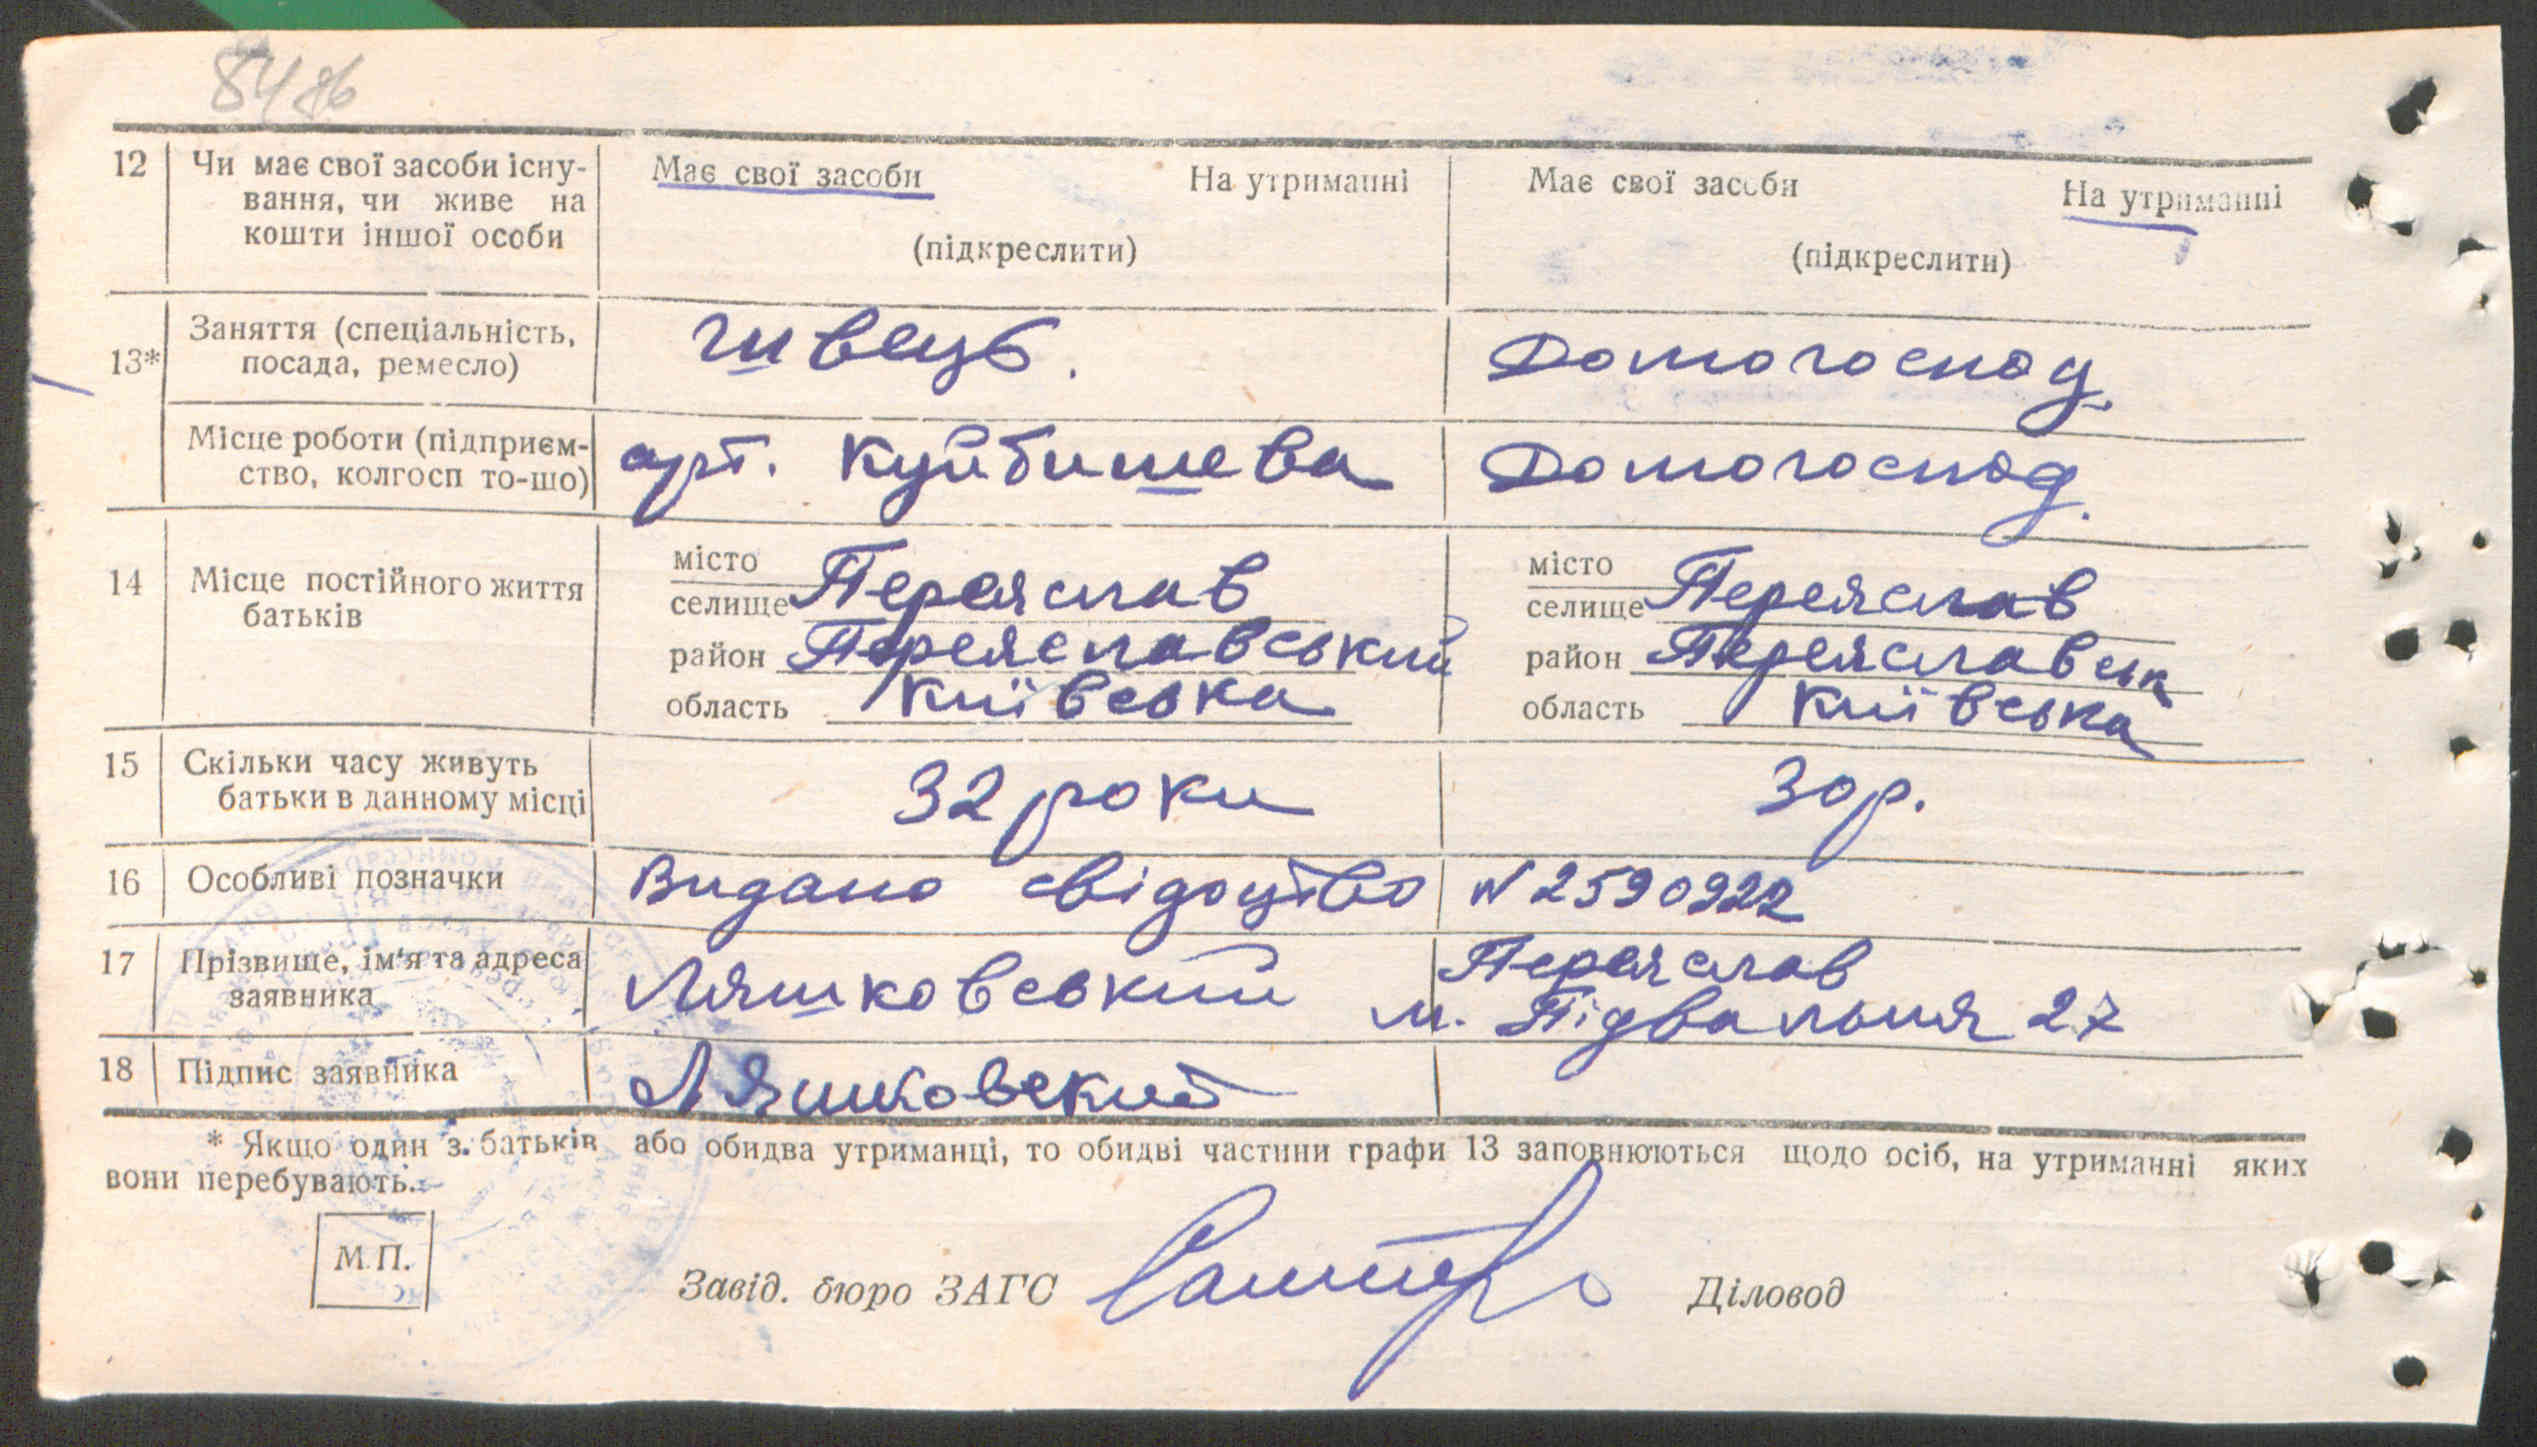 84
12 Чи має свої засоби існу- Має свої засоби На утриманні Має свої засоби На утриманні
вання, чи живе на
кошти іншої особи (підкреслити) (підкреслити)
Заняття (спеціальність, швець. Домогоспод.
13* посада, ремесло)
Місце роботи (підприєм- арт. Куйбишева Домогоспод.
ство, колгосп то-що)
місто Переяслав місто Переяслав
14 Місце постійного життя селище селище
батьків
район Переяславський район Переяславськ
область Київська область Київська
15 Скільки часу живуть 32 роки 30 р.
батьки в данному місці
16 Особливі позначки Видано свідоцтво N 2590922
17 Прізвище, ім'я та адреса Ляшковський Переяслав
заявника м. Підвальная 27
18 Підпис заявника Ляшковский
* Якщо один з батьків або обидва утриманці, то обидві частини графи 13 заповнюються щодо осіб, на утриманні яких
вони перебувають.
М.П.
Завід. бюро ЗАГС Діловод